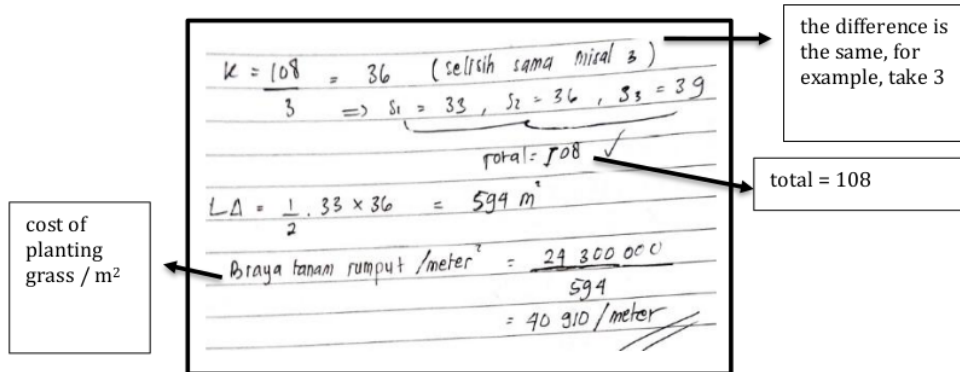 K = 108 / 3 = 36 (selisih sama misal 3)
=> S1 = 33, S2 = 36, S3 = 39
Total = 108 ✓
L∆ = 1/2 . 33 × 36 = 594 m²
Biaya tanam rumput /meter² = 24 300 000 / 594
= 40 910 /meter
the difference is
the same, for
example, take 3
total = 108
cost of
planting
grass / m²